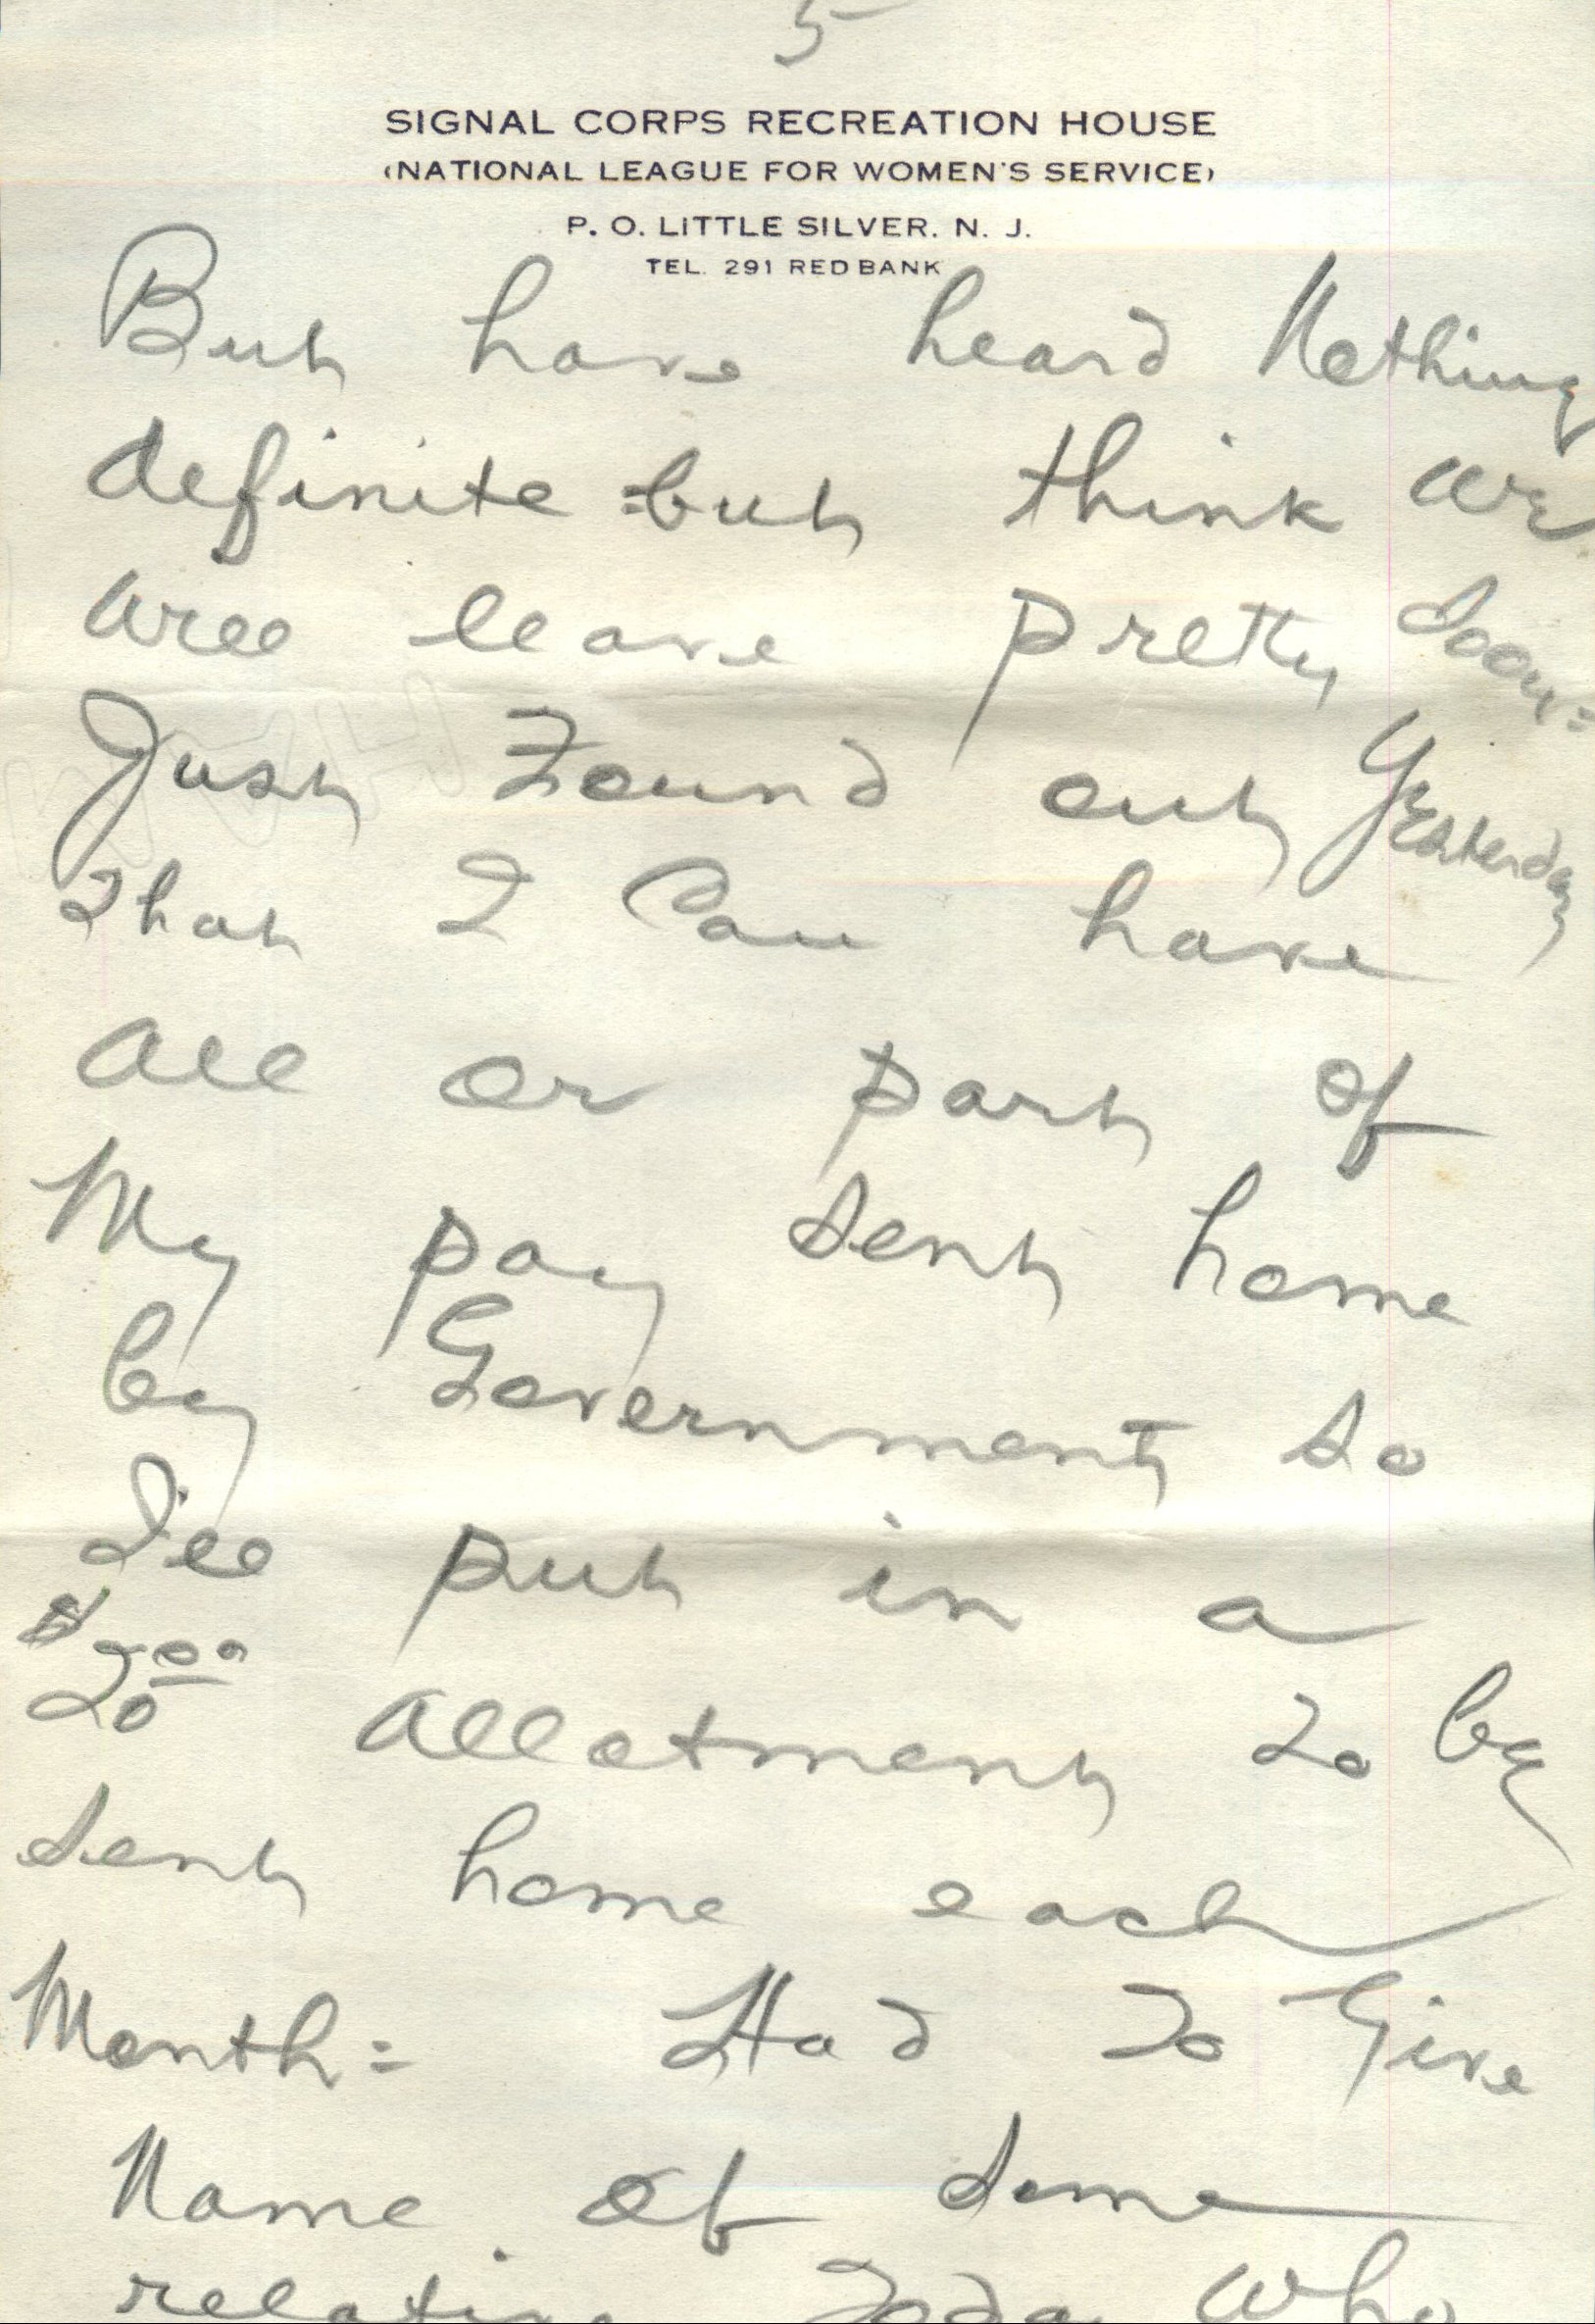 5
SIGNAL CORPS RECREATION HOUSE
(NATIONAL LEAGUE FOR WOMEN'S SERVICE)
P. O. LITTLE SILVER. N. J.
TEL. 291 RED BANK
But have heard Nothing
definite = but think we
will leave pretty soon =
Just Found out Yesterday
That I Can have
all or part of
My pay sent home
by Government so
I'll put in a
$20.00 allotment To be
sent home each
Month = Had To Give
Name of some
relative Today who